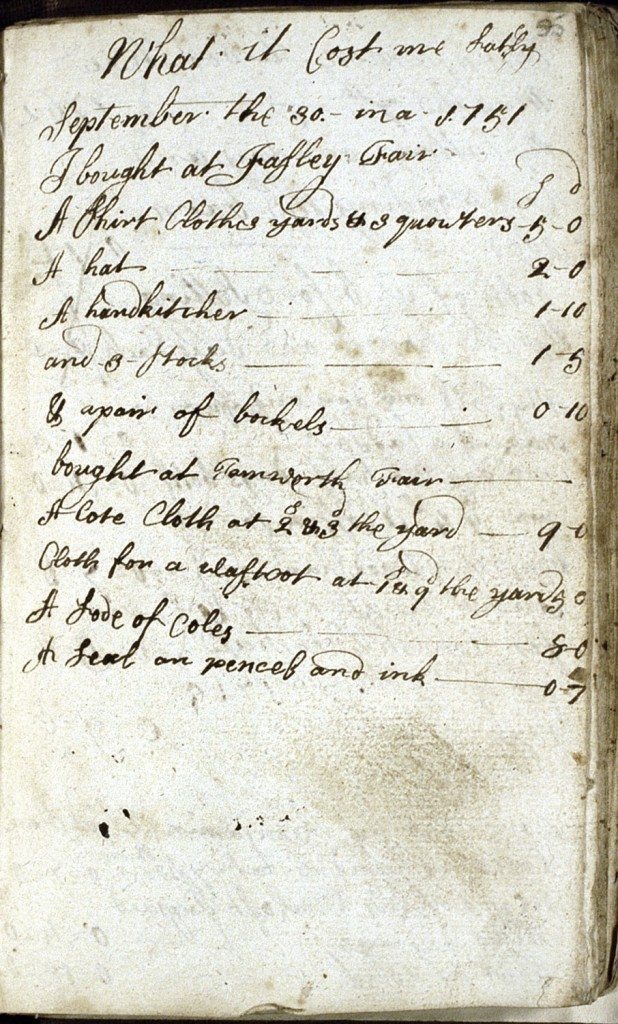 95
What it Cost me Latly
September the 30 - in a 1751
I bought at Fasley Fair
s d
A Shirt Cloth 3 yards & 3 quowters - 5 - 0
A hat 2 - 0
A handkitcher 1 - 10
and 3 - Stocks 1 - 5
& apair of bockels 0 - 10
bought at Tamworth Fair
A Cote Cloth at 2s & 3d the yard 9 - 0
Cloth for a at 1s & 9d the yard 0
A Lode of Coles 8 - 0
A Seal an pencel and ink 0 - 7